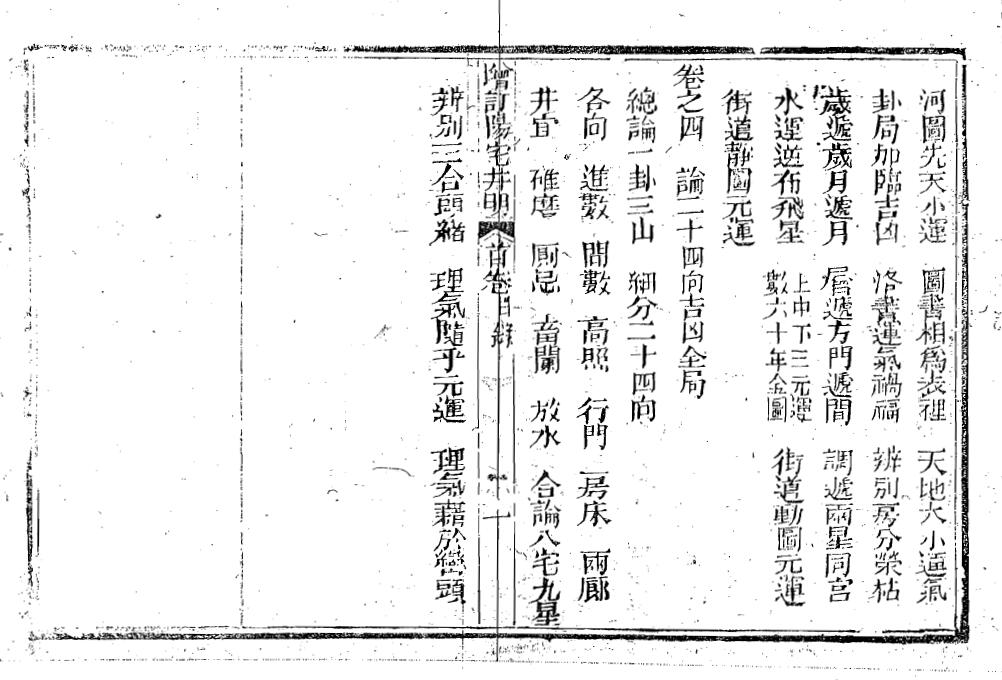 河圖先天小運 圖書相為表裡 天地大小運氣
卦局加臨吉凶 洛書運氣禍福 辨別房分榮枯
歲遞歲月遞月 層遞方門遞間 調遞兩星同宮
水運逆布飛星 上中下三元運數六十年全圖 街道動圖元運
街道靜圖元運
卷之四 論二十四向吉凶全局
總論一卦三山 細分二十四向
各向 進數 間數 高照 行門 房床 兩廊
井宜 碓磨 厠忌 畜闌 放水 合論八宅九星
增訂陽宅井明 首卷 目錄 一
辨別三合頭緒 理氣隨乎元運 理氣藉於巒頭